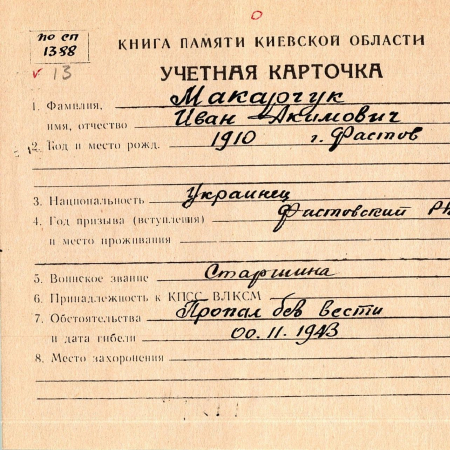 по сп
1388
13
КНИГА ПАМЯТИ КИЕВСКОЙ ОБЛАСТИ
УЧЕТНАЯ КАРТОЧКА
1. Фамилия, Макарчук
имя, отчество Иван Акимович
2. Год и место рожд. 1910 г. Фастов
3. Национальность Украинец
4. Год призыва (вступления) Фастовский
и место проживания
5. Воинское звание Старшина
6. Принадлежность к КПСС, ВЛКСМ
7. Обстоятельства Пропал без вести
и дата гибели 00.11.1943
8. Место захоронения